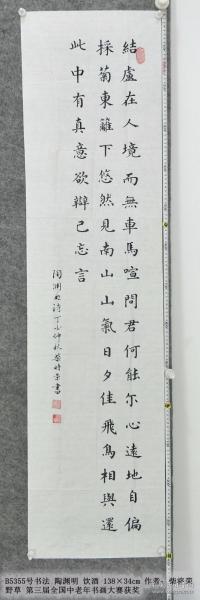 結盧在人境而無車馬喧問君何能尔心遠地自偏
採菊東籬下悠然見南山山氣日夕佳飛鳥相與還
此中有真意欲辯已忘言
陶渊明诗丁亥仲秋柴時荣書
B5355号书法 陶渊明 饮酒 138×34cm 作者:柴時荣
野草 第三届全国中老年书画大赛获奖